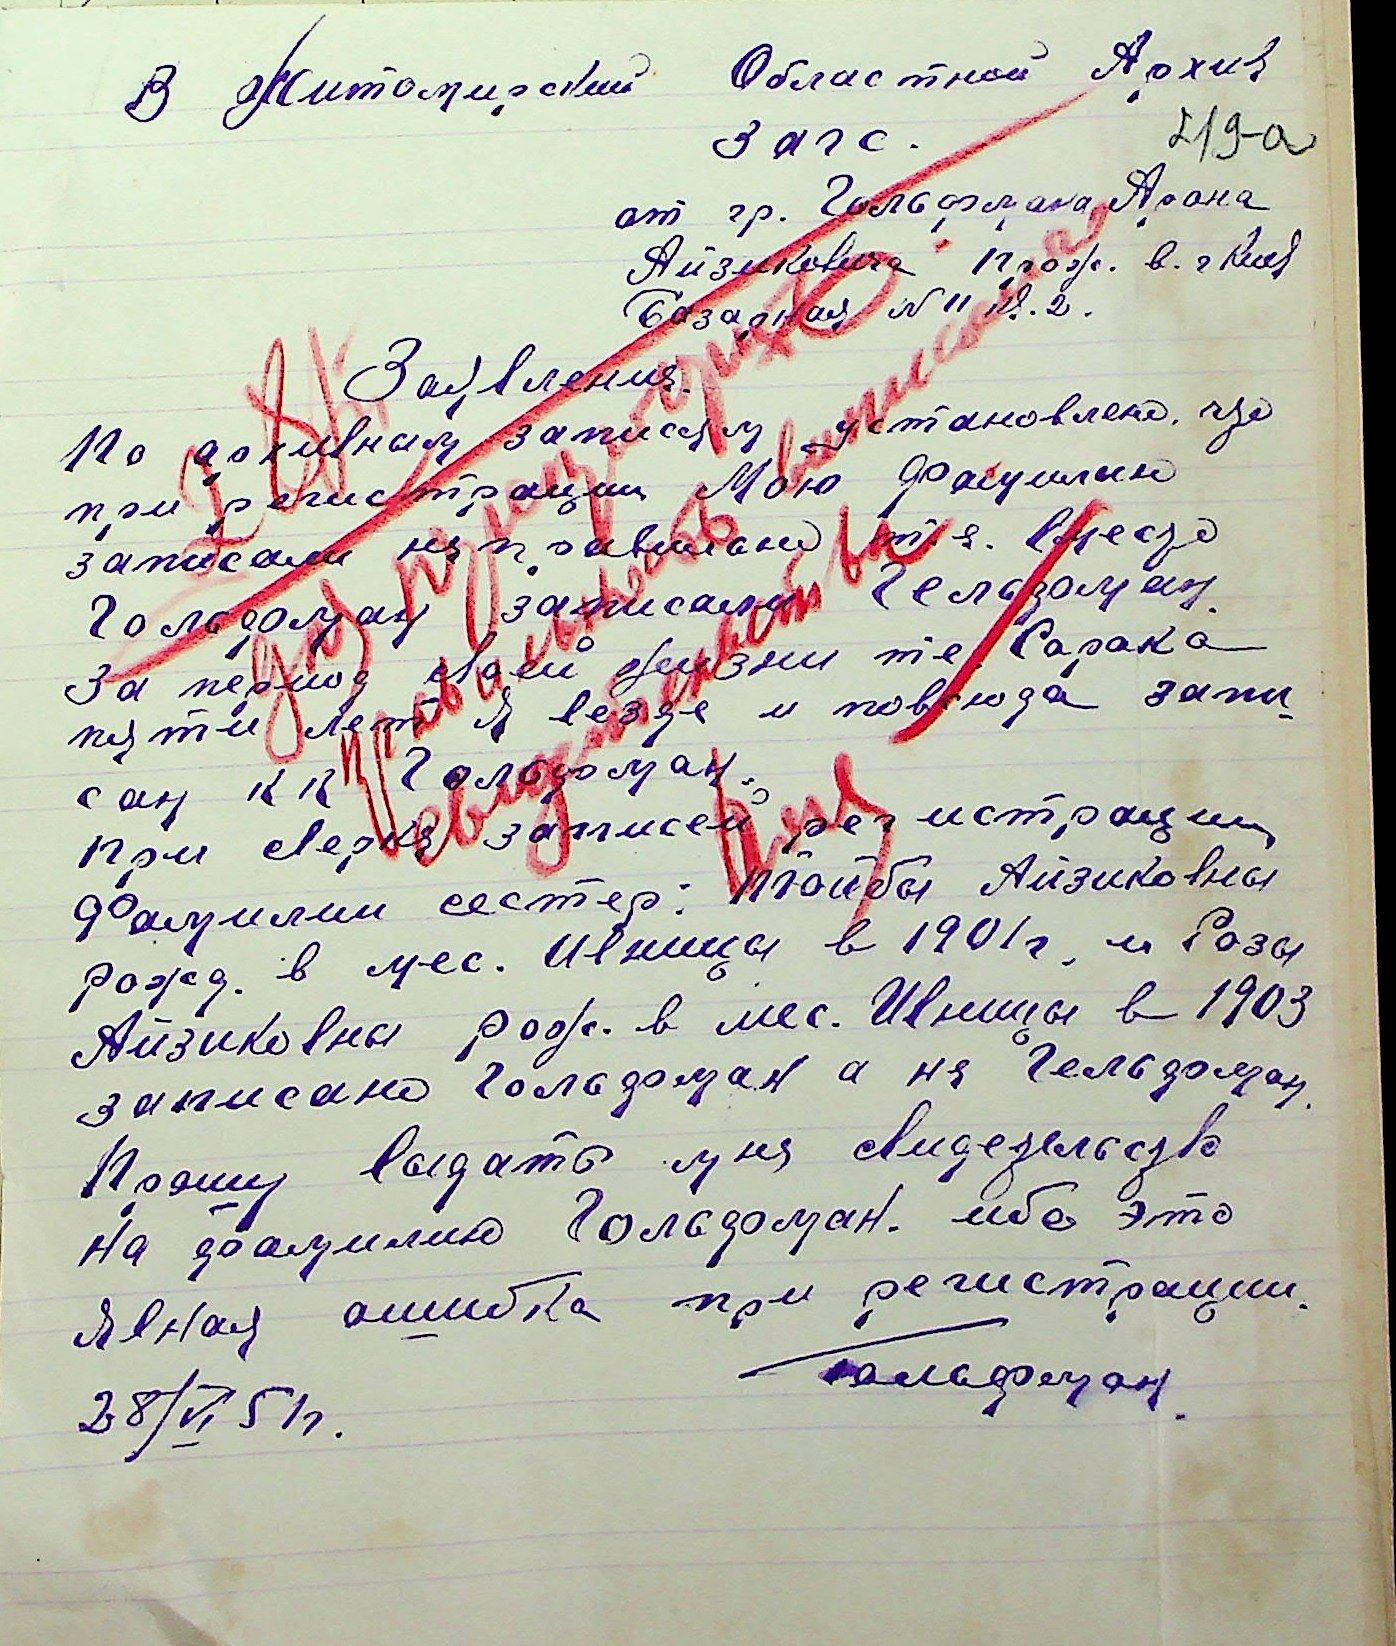 В Житомирский Областной Архив
Загс.
219-а
от гр. Гольдфмана Арона
Айзиковича прож. в. г Киев
Базарная № 11 кв. 2.
Заявления.
По архивным записям установлено. что
при регистрации Мою Фамилию
записали неправильно т.е. вместо
Гольдфман записали Гельдфман.
За период своей жизни т.е. Сорока
пяти лет Я везде и повсюда запи
сан кк Гольдфман.
При сверке записей регистрации
фамилии сестер: Тойбы Айзиковны
рожд. в мес. Ивницы в 1901г. и Розы
Айзиковны рож. в мес. Ивницы в 1903
записано Гольдфман а не Гельдфман.
Прошу выдать мне свидетельство
на фамилию Гольдфман. ибо это
явная ошибка при регистрации.
Гольдфман.
28/VI 51г.
правильность выписанна
свидетельства